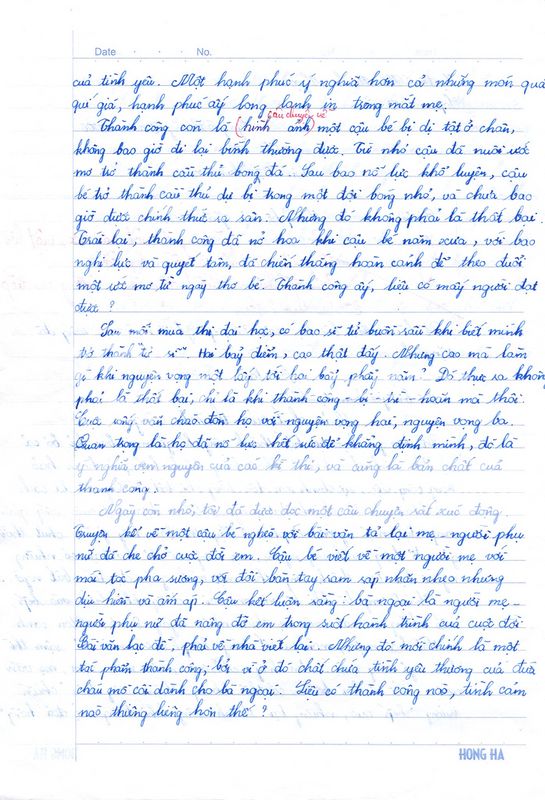 Date . . . No.
của tình yêu. Một hạnh phúc ý nghĩa hơn cả những món quà
quí giá, hạnh phúc ấy long lanh in trong mắt mẹ.
câu chuyện về
Thành công còn là (hình ảnh) một cậu bé bị dị tật ở chân,
không bao giờ đi lại bình thường được. Từ nhỏ cậu đã nuôi ước
mơ trở thành cầu thủ bóng đá. Sau bao nỗ lực khổ luyện, cậu
bé trở thành cầu thủ dự bị trong một đội bóng nhỏ, và chưa bao
giờ được chính thức ra sân. Nhưng đó không phải là thất bại.
Trái lại, thành công đã nở hoa khi cậu bé năm xưa, với bao
nghị lực và quyết tâm, đã chiến thắng hoàn cảnh để theo đuổi
một ước mơ từ ngày thơ bé. Thành công ấy, liệu có mấy người đạt
được ?
Sau mỗi mùa thi đại học, có bao sĩ tử buồn sầu khi biết mình
trở thành "tử sĩ". Hai bảy điểm, cao thật đấy. Nhưng cao mà làm
gì khi nguyện vọng một lấy tới hai bảy phẩy năm? Đó thực ra không
phải là thất bại, chỉ là khi thành công - bị - trì - hoãn mà thôi.
Cuộc sống vẫn chào đón họ với nguyện vọng hai, nguyện vọng ba.
Quan trọng là họ đã nỗ lực hết sức để khẳng định mình, đó là
ý nghĩa vẹn nguyên của các kì thi, và cũng là bản chất của
thành công.
Ngày còn nhỏ, tôi đã được đọc một câu chuyện rất xúc động.
Truyện kể về một cậu bé nghèo với bài văn tả lại mẹ - người phụ
nữ đã che chở cuộc đời em. Cậu bé viết về một người mẹ với
mái tóc pha sương, với đôi bàn tay ram ráp nhăn nheo nhưng
dịu hiền và ấm áp. Cậu kết luận rằng: bà ngoại là người mẹ -
người phụ nữ đã nâng đỡ em trong suốt hành trình của cuộc đời.
Bài văn lạc đề, phải về nhà viết lại. Nhưng đó mới chính là một
tác phẩm thành công, bởi vì ở đó chất chứa tình yêu thương của đứa
cháu mồ côi dành cho bà ngoại. Liệu có thành công nào, tình cảm
nào thiêng liêng hơn thế ?
HONG HA